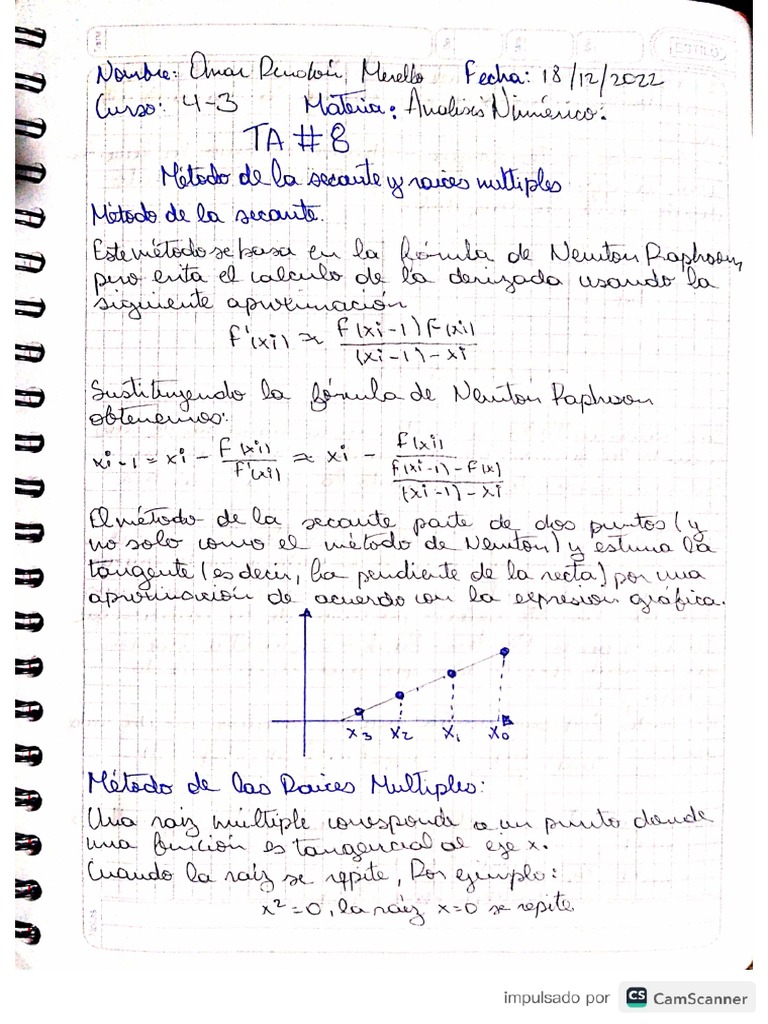 Nombre: Omar Rendón Merello Fecha: 18/12/2022
Curso: 4-3 Materia: Analisis Númérico:
TA #8
Método de la secante y raices multiples
Método de la secante.
Este método se basa en la fórmula de Newton Raphson,
pero evita el calculo de la derivada usando la
siguiente aproximación
F'(xi) ≈ F(xi-1) F(xi) / (xi-1)-xi
Sustituyendo la fórmula de Newton Raphson
obtenemos:
xi-1 = xi - F(xi) / F'(xi) ≈ xi - F(xi) / F(xi-1)-F(x) / (xi-1)-xi
El método de la secante parte de dos puntos (y
no solo como el método de Newton) y estima la
tangente (es decir, la pendiente de la recta) por una
aproximación de acuerdo con la expresion gráfica.
x3 x2 x1 x0
Método de las Raices Multiples:
Una raiz múltiple corresponde a un punto donde
una función es tangencial al eje x.
Cuando la raíz se repite, Por ejemplo:
x²=0, la raíz x=0 se repite
impulsado por CS CamScanner